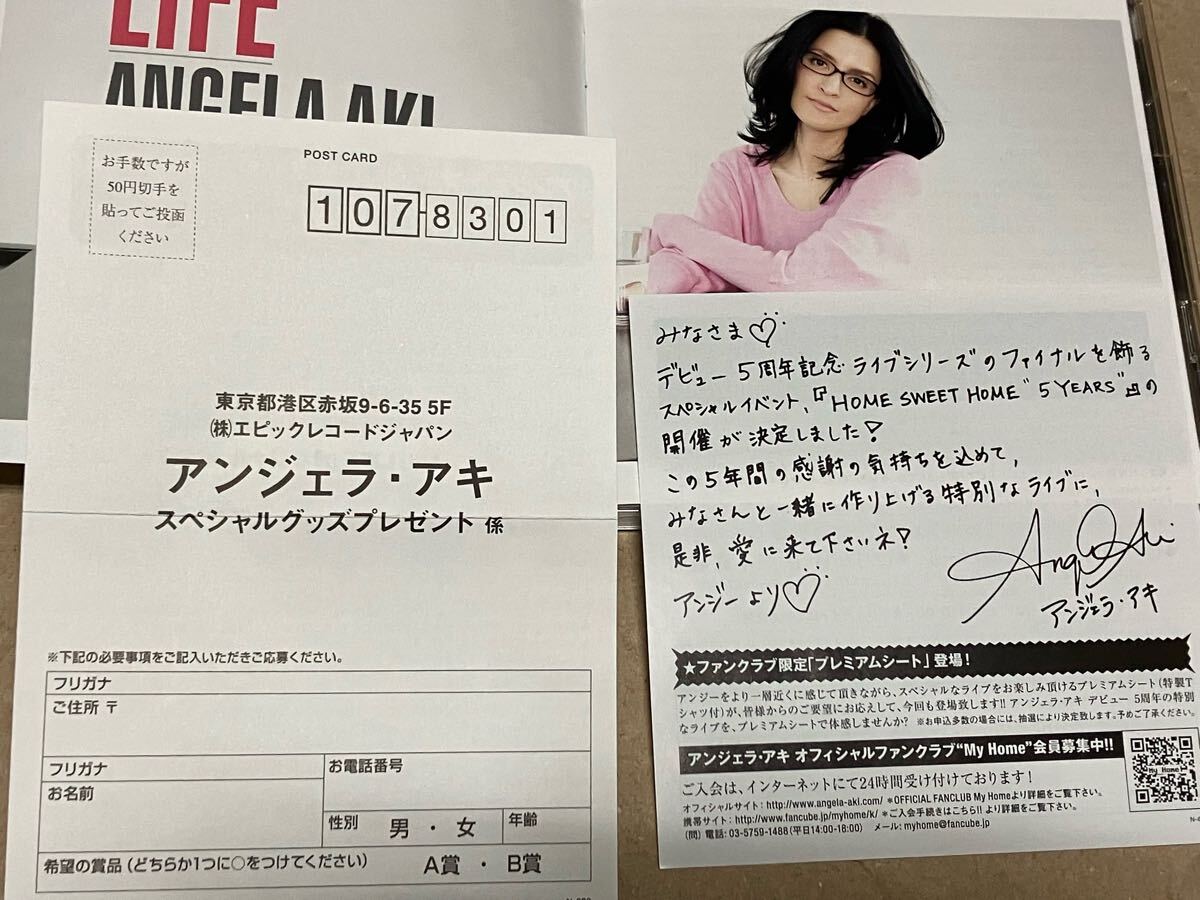 LIFE
ANGELA AKI
お手数ですが
50円切手を
貼ってご投函
ください
POST CARD
107-8301
東京都港区赤坂9-6-35 5F
㈱エピックレコードジャパン
アンジェラ・アキ
スペシャルグッズプレゼント 係
※下記の必要事項をご記入いただきご応募ください。
フリガナ
ご住所 〒
フリガナ
お名前
お電話番号
性別 男 ・ 女
年齢
希望の賞品 (どちらか1つに○をつけてください) A賞 ・ B賞
みなさま♡
デビュー 5周年記念 ライブシリーズのファイナルを飾る
スペシャルイベント,『HOME SWEET HOME "5 YEARS"』の
開催が決定しました!
この5年間の感謝の気持ちを込めて,
みなさんと一緒に作り上げる特別なライブに,
是非, 愛に来て下さいネ!
アンジーより♡
Angela Aki
アンジェラ・アキ
★ファンクラブ限定「プレミアムシート」登場!
アンジーをより一層近くに感じて頂きながら、スペシャルなライブをお楽しみ頂けるプレミアムシート(特製T
シャツ付)が、皆様からのご要望にお応えして、今回も登場致します!! アンジェラ・アキ デビュー 5周年の特別
なライブを、プレミアムシートで体感しませんか? ※お申込多数の場合には、抽選により決定致します。予めご了承ください。
アンジェラ・アキ オフィシャルファンクラブ“My Home”会員募集中!!
ご入会は、インターネットにて24時間受け付けております!
オフィシャルサイト:http://www.angela-aki.com/ ＊OFFICIAL FANCLUB My Homeより詳細をご覧下さい。
携帯サイト:http://www.fancube.jp/myhome/k/ ＊ご入会手続きはこちら!! より詳細をご覧下さい。
(問) 電話:03-5759-1488(平日14:00-18:00) メール:myhome@fancube.jp
My Home